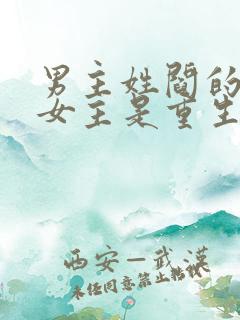 男主姓閻的
女主是重生
西安—武漢
未经同意禁止转载